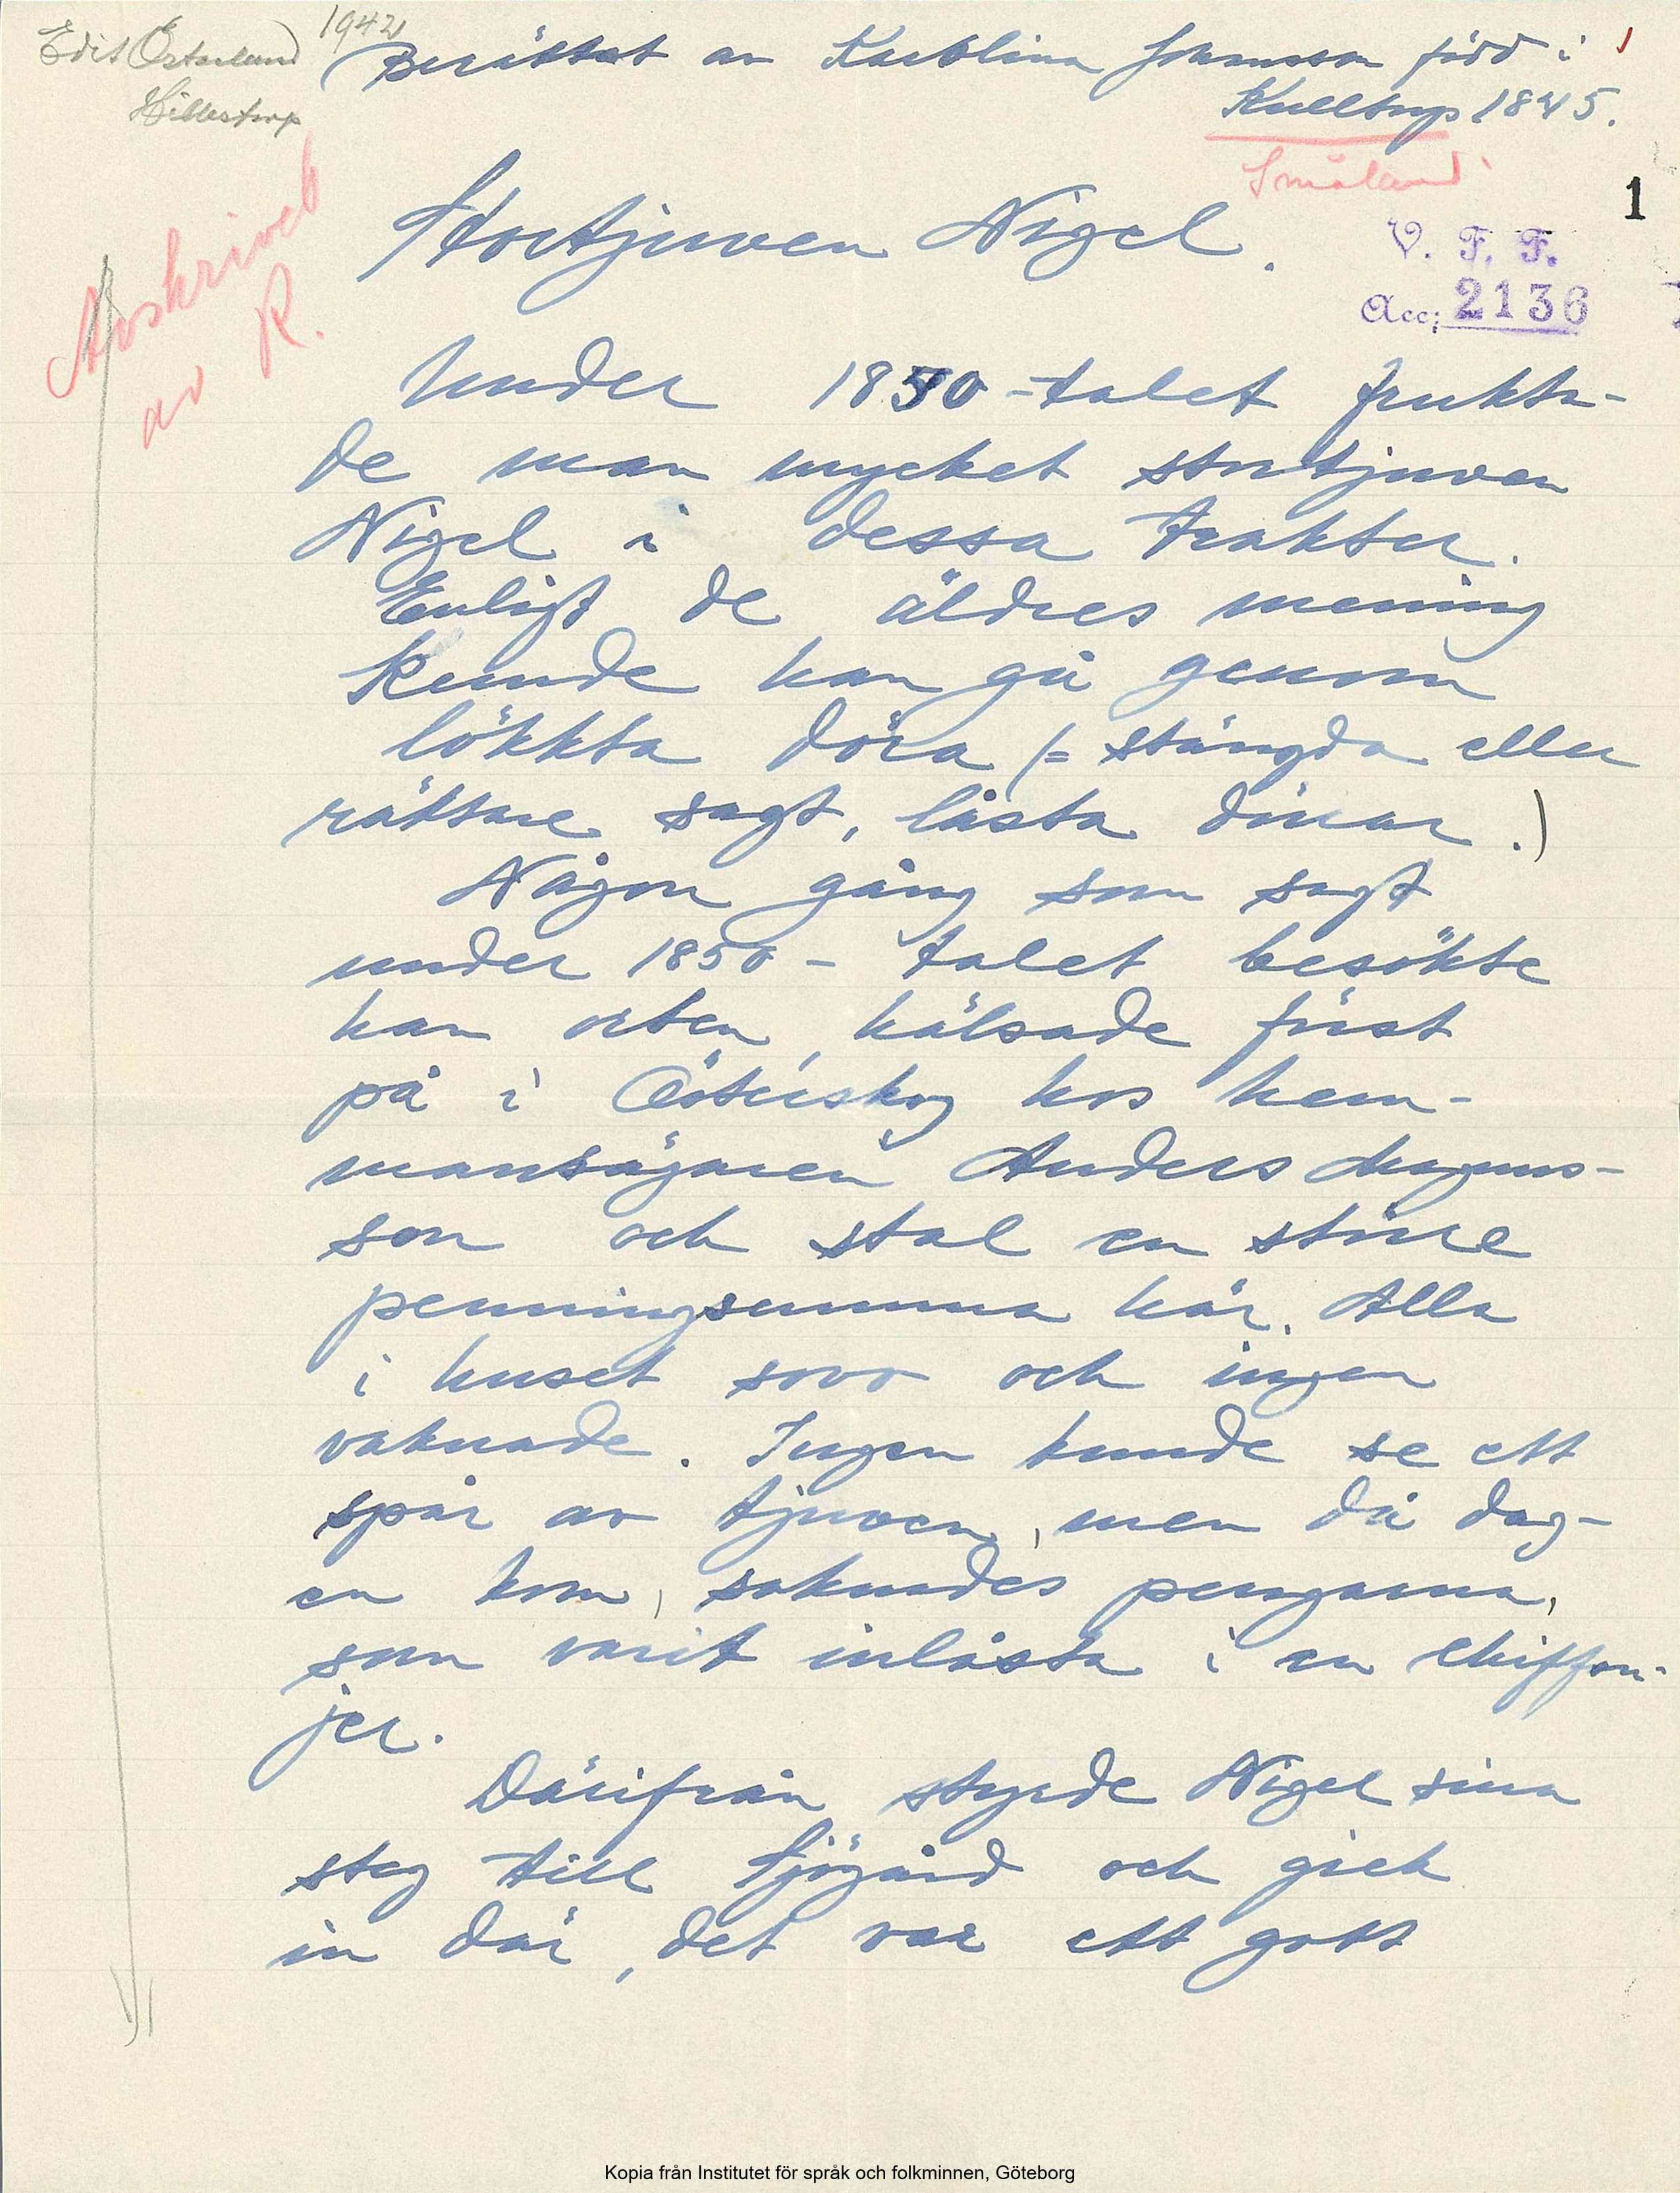 Edit Österlund 1942
Hillestorp
Berättat av Karolina Johansson född i 1
Kulltorp 1845.
Småland
Avskrivet
av R.
1
Stortjuven Nigel.
V. F. F.
Acc; 2136
Under 1850-talet frukta-
de man mycket stortjuven
Nigel i dessa trakter.
Enligt de äldres mening
kunde han gå genom
lökkta döra (= stängda eller
rättare sagt, låsta dörrar.)
Någon gång som sagt
under 1850-talet besökte
han orten, hälsade först
på i Österskog hos hem-
mansägaren Anders Magnus-
son och stal en större
penningsumma här. Alla
i huset sovo och ingen
vaknade. Ingen kunde se ett
spår av tjuven, men då dag-
en kom, saknades pengarna,
som varit inlåsta i en chiffon-
jer.
Därifrån styrde Nigel sina
steg till Sjögård och gick
in där, det var ett gott
Kopia från Institutet för språk och folkminnen, Göteborg